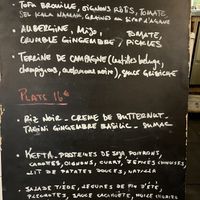 - TOFU BROUILLÉ, OIGNONS RÔTIS, TOMATE
SEL KALA NAMAK, GRAINES AU SIROP D'AGAVE
- AUBERGINE, MISO, TOMATE,
CRUMBLE GINGEMBRE, PICKLES
- TERRINE DE CAMPAGNE (lentilles beluga,
champignons, sauce GRIBICHE
PLATS 16€
- RIZ NOIR - CRÈME DE BUTTERNUT -
TAGINI GINGEMBRE BASILIC - SUMAC
- KEFTA - PROTÉINES DE SOJA, POIVRONS,
CAROTTES, OIGNONS, CUMIN,
LIT DE PATATES DOUCES,
- SALADE TIÈDE, LÉGUMES DE FIN D'ÉTÉ,
SAUCE CACAHUÈTE,